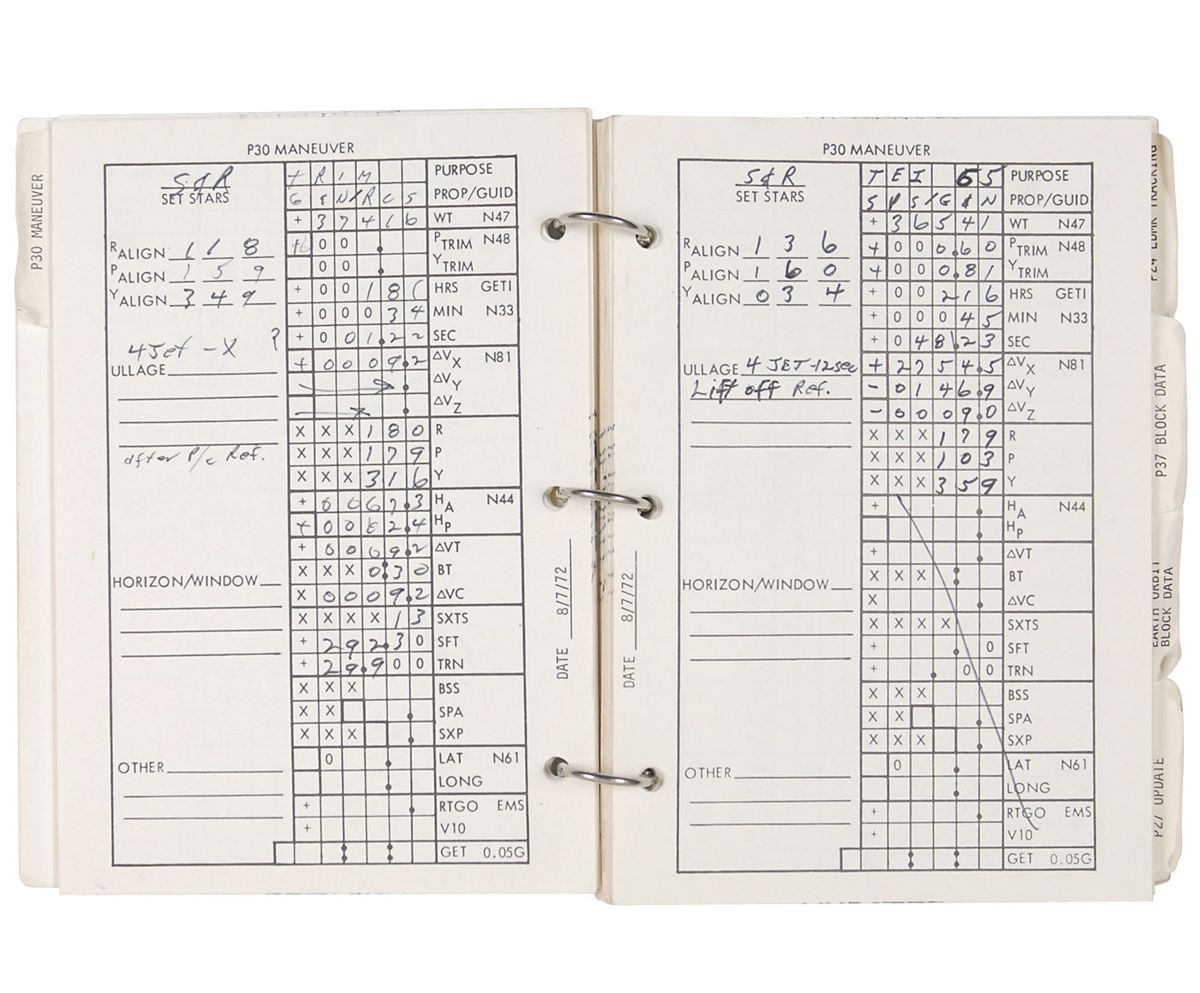 P30 MANEUVER
P30 MANEUVER
S&R
SET STARS
T R I M PURPOSE
G & N / R C S PROP/GUID
+ 3 7 4 1 6 WT N47
0 0 P TRIM N48
0 0 Y TRIM
R ALIGN 1 1 8
P ALIGN 1 5 9
Y ALIGN 3 4 9
+ 0 0 1 8 HRS GETI
+ 0 0 0 3 4 MIN N33
+ 0 0 1.2 2 SEC
4 Jet -X ?
ULLAGE
+ 0 0 0 9.2 ΔVX N81
ΔVY
ΔVZ
X X X 1 8 0 R
X X X 1 7 9 P
X X X 3 1 6 Y
after P/C Ref.
+ 0 0 6 7.3 HA N44
+ 0 0 6 2.4 HP
+ 0 0 0 9.2 ΔVT
X X X 0:3 0 BT
X 0 0 0 9.2 ΔVC
HORIZON/WINDOW
X X X X 1 3 SXTS
+ 2 9 2.3 0 SFT
+ 2 9.9 0 0 TRN
X X X BSS
X X SPA
X X X SXP
0 LAT N61
LONG
OTHER
+ RTGO EMS
+ V10
GET 0.05G
DATE 8/7/72
P30 MANEUVER
S&R
SET STARS
T E I 65 PURPOSE
S P S / G & N PROP/GUID
+ 3 6 5 4 1 WT N47
+ 0 0 0.6 0 P TRIM N48
+ 0 0 0.8 1 Y TRIM
R ALIGN 1 3 6
P ALIGN 1 6 0
Y ALIGN 0 3 4
+ 0 0 2 1 6 HRS GETI
+ 0 0 0 4 5 MIN N33
+ 0 4 8.2 3 SEC
ULLAGE 4 JET-12sec
Lift off Ref.
+ 2 7 5 4.5 ΔVX N81
- 0 1 4 6.9 ΔVY
- 0 0 0 9.0 ΔVZ
X X X 1 7 9 R
X X X 1 0 3 P
X X X 3 5 9 Y
+ HA N44
HP
+ ΔVT
X X X BT
X ΔVC
HORIZON/WINDOW
X X X X SXTS
+ 0 SFT
+ 0 0 TRN
X X X BSS
X X SPA
X X X SXP
0 LAT N61
LONG
OTHER
+ RTGO EMS
+ V10
GET 0.05G
DATE 8/7/72
P24 LDMK TRACKING
P37 BLOCK DATA
EARTH ORBIT
BLOCK DATA
P27 UPDATE